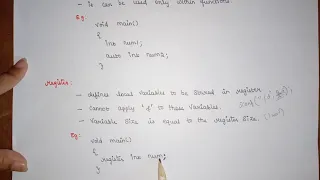 - is can be used only within functions.
Eg
void main()
{
int num1;
auto int num2;
}
Register:
- defines local variables to be stored in registers
- Cannot apply '&' to these variables.
- Variable size is equal to the register size.
Eg:
void main()
{
register int num;
}